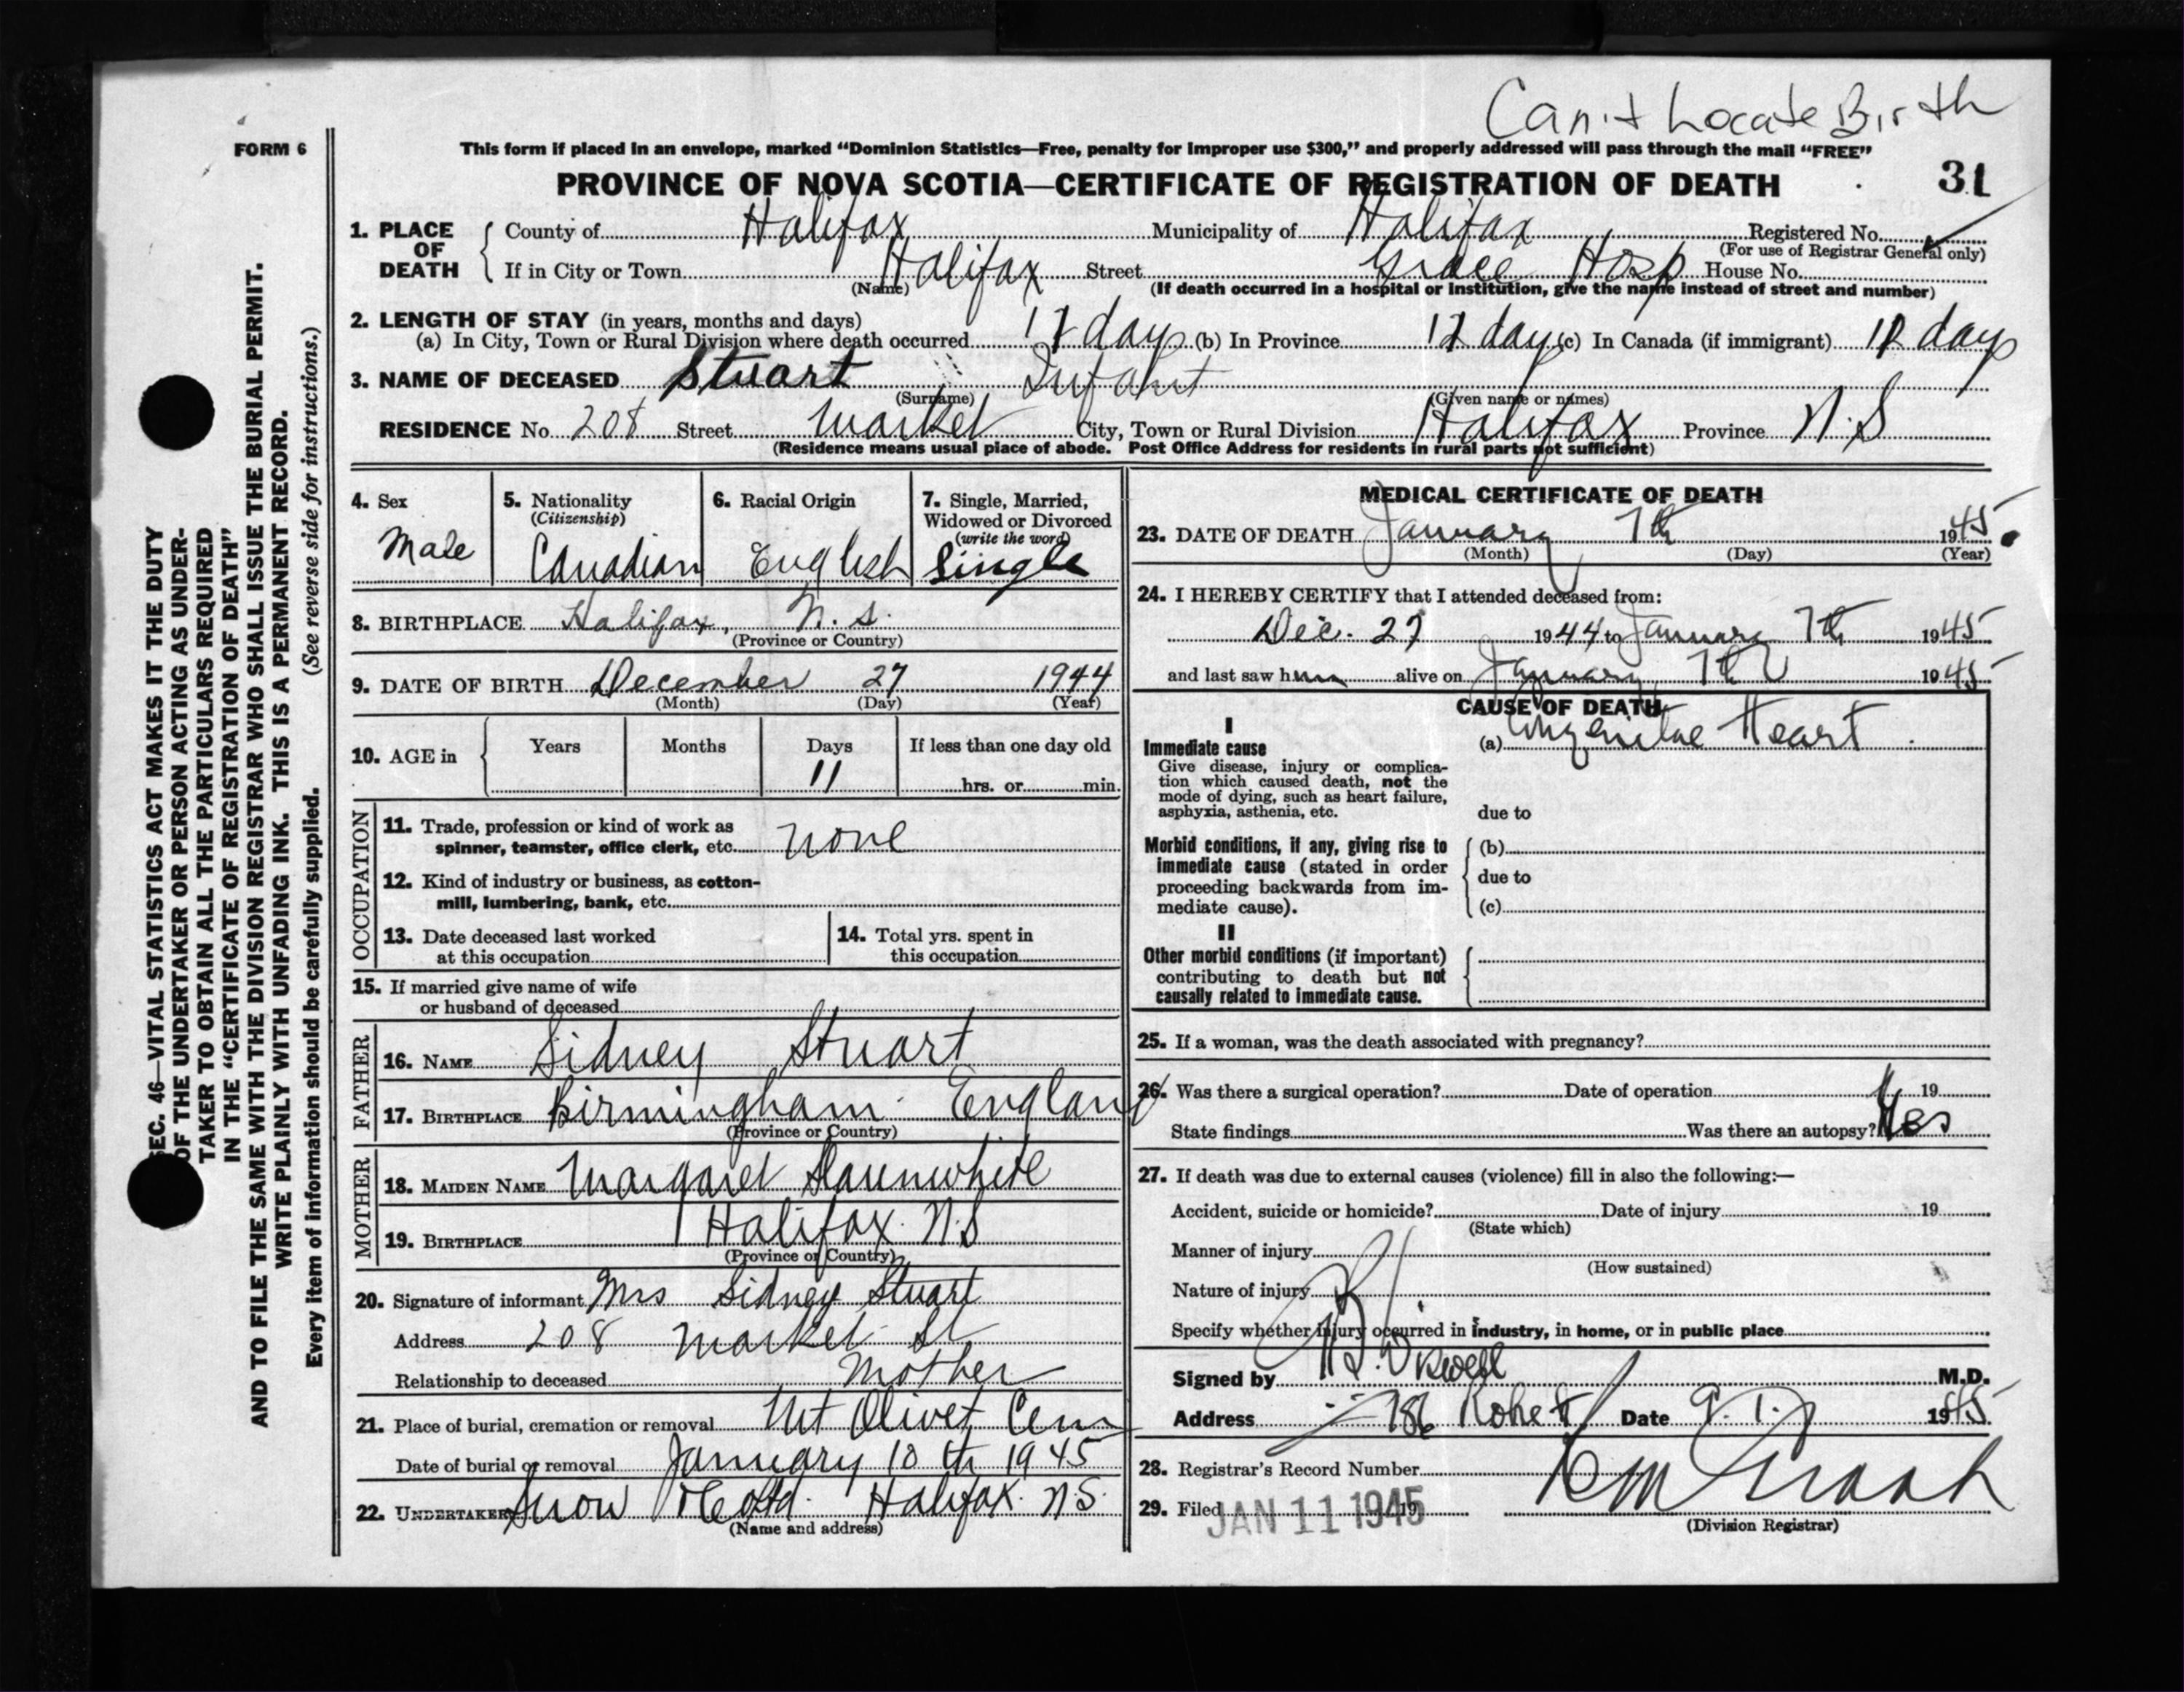 Can't Locate Birth
FORM 6
This form if placed in an envelope, marked “Dominion Statistics—Free, penalty for improper use $300,” and properly addressed will pass through the mail “FREE”
PROVINCE OF NOVA SCOTIA—CERTIFICATE OF REGISTRATION OF DEATH 31
1. PLACE OF DEATH
County of Halifax Municipality of Halifax Registered No.
(For use of Registrar General only)
If in City or Town Halifax Street Grace Hosp House No.
(Name) (If death occurred in a hospital or institution, give the name instead of street and number)
2. LENGTH OF STAY (in years, months and days)
(a) In City, Town or Rural Division where death occurred days (b) In Province 12 days (c) In Canada (if immigrant) days
3. NAME OF DECEASED Stuart Infant
(Surname) (Given name or names)
RESIDENCE No. 208 Street Market City, Town or Rural Division Halifax Province N.S
(Residence means usual place of abode. Post Office Address for residents in rural parts not sufficient)
4. Sex
Male
5. Nationality
(Citizenship)
Canadian
6. Racial Origin
English
7. Single, Married,
Widowed or Divorced
(write the word)
Single
8. BIRTHPLACE Halifax, N. S.
(Province or Country)
9. DATE OF BIRTH December 27 1944
(Month) (Day) (Year)
10. AGE in Years Months Days If less than one day old
11 hrs. or min.
OCCUPATION
11. Trade, profession or kind of work as
spinner, teamster, office clerk, etc. none
12. Kind of industry or business, as cotton-
mill, lumbering, bank, etc.
13. Date deceased last worked
at this occupation
14. Total yrs. spent in
this occupation
15. If married give name of wife
or husband of deceased
FATHER
16. NAME Sidney Stuart
17. BIRTHPLACE Birmingham England
(Province or Country)
MOTHER
18. MAIDEN NAME Margaret Slaunwhite
19. BIRTHPLACE Halifax N.S
(Province or Country)
20. Signature of informant Mrs Sidney Stuart
Address 208 Market St
Relationship to deceased Mother
21. Place of burial, cremation or removal Mt Olivet Cem
Date of burial or removal January 10 th 1945
22. UNDERTAKER Snow & Co Ltd. Halifax. N.S.
(Name and address)
MEDICAL CERTIFICATE OF DEATH
23. DATE OF DEATH January 7th 1945
(Month) (Day) (Year)
24. I HEREBY CERTIFY that I attended deceased from:
Dec. 27 1944 to January 7th 1945
and last saw him alive on January 7th 1945
CAUSE OF DEATH
I
Immediate cause
Give disease, injury or complica-
tion which caused death, not the
mode of dying, such as heart failure,
asphyxia, asthenia, etc.
(a) Heart
due to
Morbid conditions, if any, giving rise to
immediate cause (stated in order
proceeding backwards from im-
mediate cause).
(b)
due to
(c)
II
Other morbid conditions (if important)
contributing to death but not
causally related to immediate cause.
25. If a woman, was the death associated with pregnancy?
26. Was there a surgical operation? Date of operation 19
State findings Was there an autopsy? Yes
27. If death was due to external causes (violence) fill in also the following:—
Accident, suicide or homicide? Date of injury 19
(State which)
Manner of injury
(How sustained)
Nature of injury
Specify whether injury occurred in industry, in home, or in public place
Signed by M.D.
Address Date 1945
28. Registrar's Record Number
29. Filed JAN 11 1945 19
(Division Registrar)
SEC. 46—VITAL STATISTICS ACT MAKES IT THE DUTY
OF THE UNDERTAKER OR PERSON ACTING AS UNDER-
TAKER TO OBTAIN ALL THE PARTICULARS REQUIRED
IN THE “CERTIFICATE OF REGISTRATION OF DEATH”
AND TO FILE THE SAME WITH THE DIVISION REGISTRAR WHO SHALL ISSUE THE BURIAL PERMIT.
WRITE PLAINLY WITH UNFADING INK. THIS IS A PERMANENT RECORD.
Every item of information should be carefully supplied. (See reverse side for instructions.)